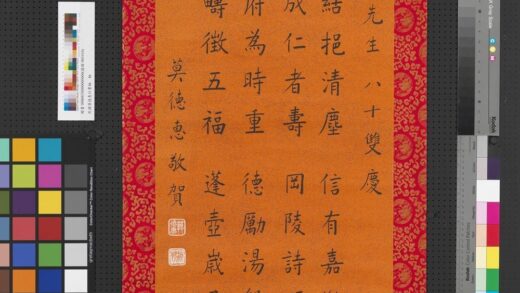 先生 八十雙慶
結挹清塵 信有嘉
成仁者壽 岡陵詩
府為時重 德勵湯
疇徵五福 蓬壺歲
莫德惠敬賀
Kodak
Kodak